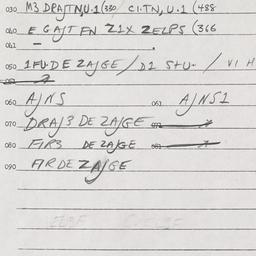 030 M3 DRAJTN,U.1 (330 CI.TN, U.1 (488
040 E GAJT FN Z1X ZELPS (366
041
050 1FU.DE ZAJGE / D1 S+U. / VI H
060 AJNS 061 AJNS1
070 DRAJ3 DE ZAJGE
080 FIR3 DE ZAJGE
090 FIRDE ZAJGE